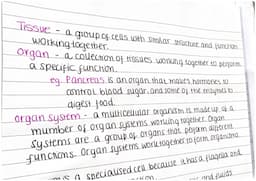 Tissue - a group of cells with similar structure and function
working together.
Organ - a collection of tissues working together to perform
a specific function.
eg. Pancreas is an organ that makes hormones to
control blood sugar, and some of the enzymes to
digest food.
Organ system - a multicellular organism is made up of a
number of organ systems working together. Organ
systems are a group of organs that perform different
functions. Organ systems work together to form organisms
is a specialised cell because it has a flagella and
and fluids